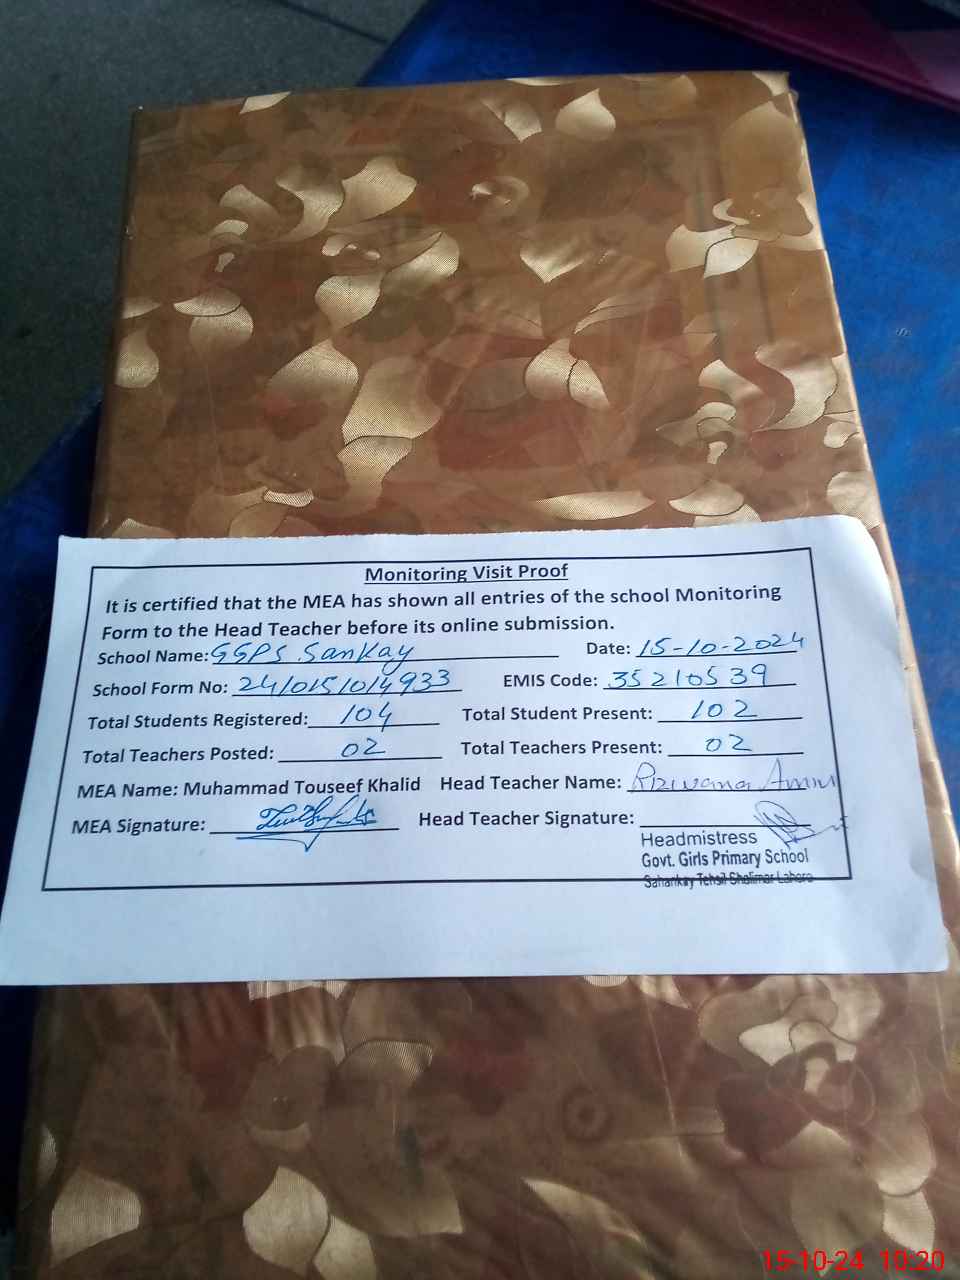 Monitoring Visit Proof
It is certified that the MEA has shown all entries of the school Monitoring
Form to the Head Teacher before its online submission.
School Name: GGPS Sankay Date: 15-10-2024
School Form No: 24/015/014933 EMIS Code: 35210539
Total Students Registered: 104 Total Student Present: 102
Total Teachers Posted: 02 Total Teachers Present: 02
MEA Name: Muhammad Touseef Khalid Head Teacher Name: Rizwana
MEA Signature: Head Teacher Signature:
Headmistress
Govt. Girls Primary School
Sahankay Tehsil Shalimar Lahore
15-10-24 10:20